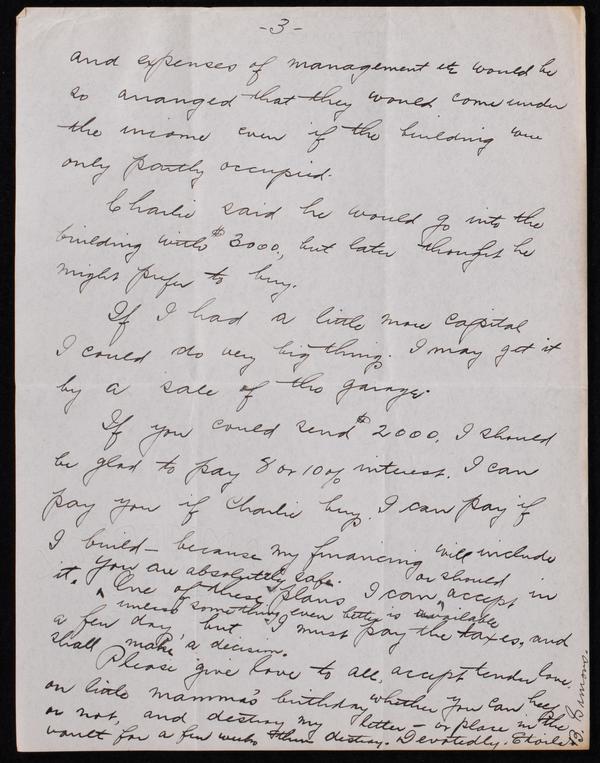 -3-
and expenses of management etc would be
so arranged that they would come under
the income even if the building were
only partly occupied.
Charlie said he would go into the
building with $3000, but later thought he
might prefer to buy.
If I had a little more capital
I could do very big things. I may get it
by a sale of the garage.
If you could send $2000, I should
be glad to pay 8 or 10% interest. I can
pay you if Charlie buys. I can pay if
I build - because my financing will include
it. You are absolutely safe. or should
One of these plans I can accept in
unless something even better is available
a few days but I must pay the taxes, and
shall make a decision.
Please give love to all, accept tender love
on little mamma's birthday whether you can help
or not, and destroy my letter - or place in the
vault for a few weeks then destroy. Devotedly, Etoile
B. Simons.